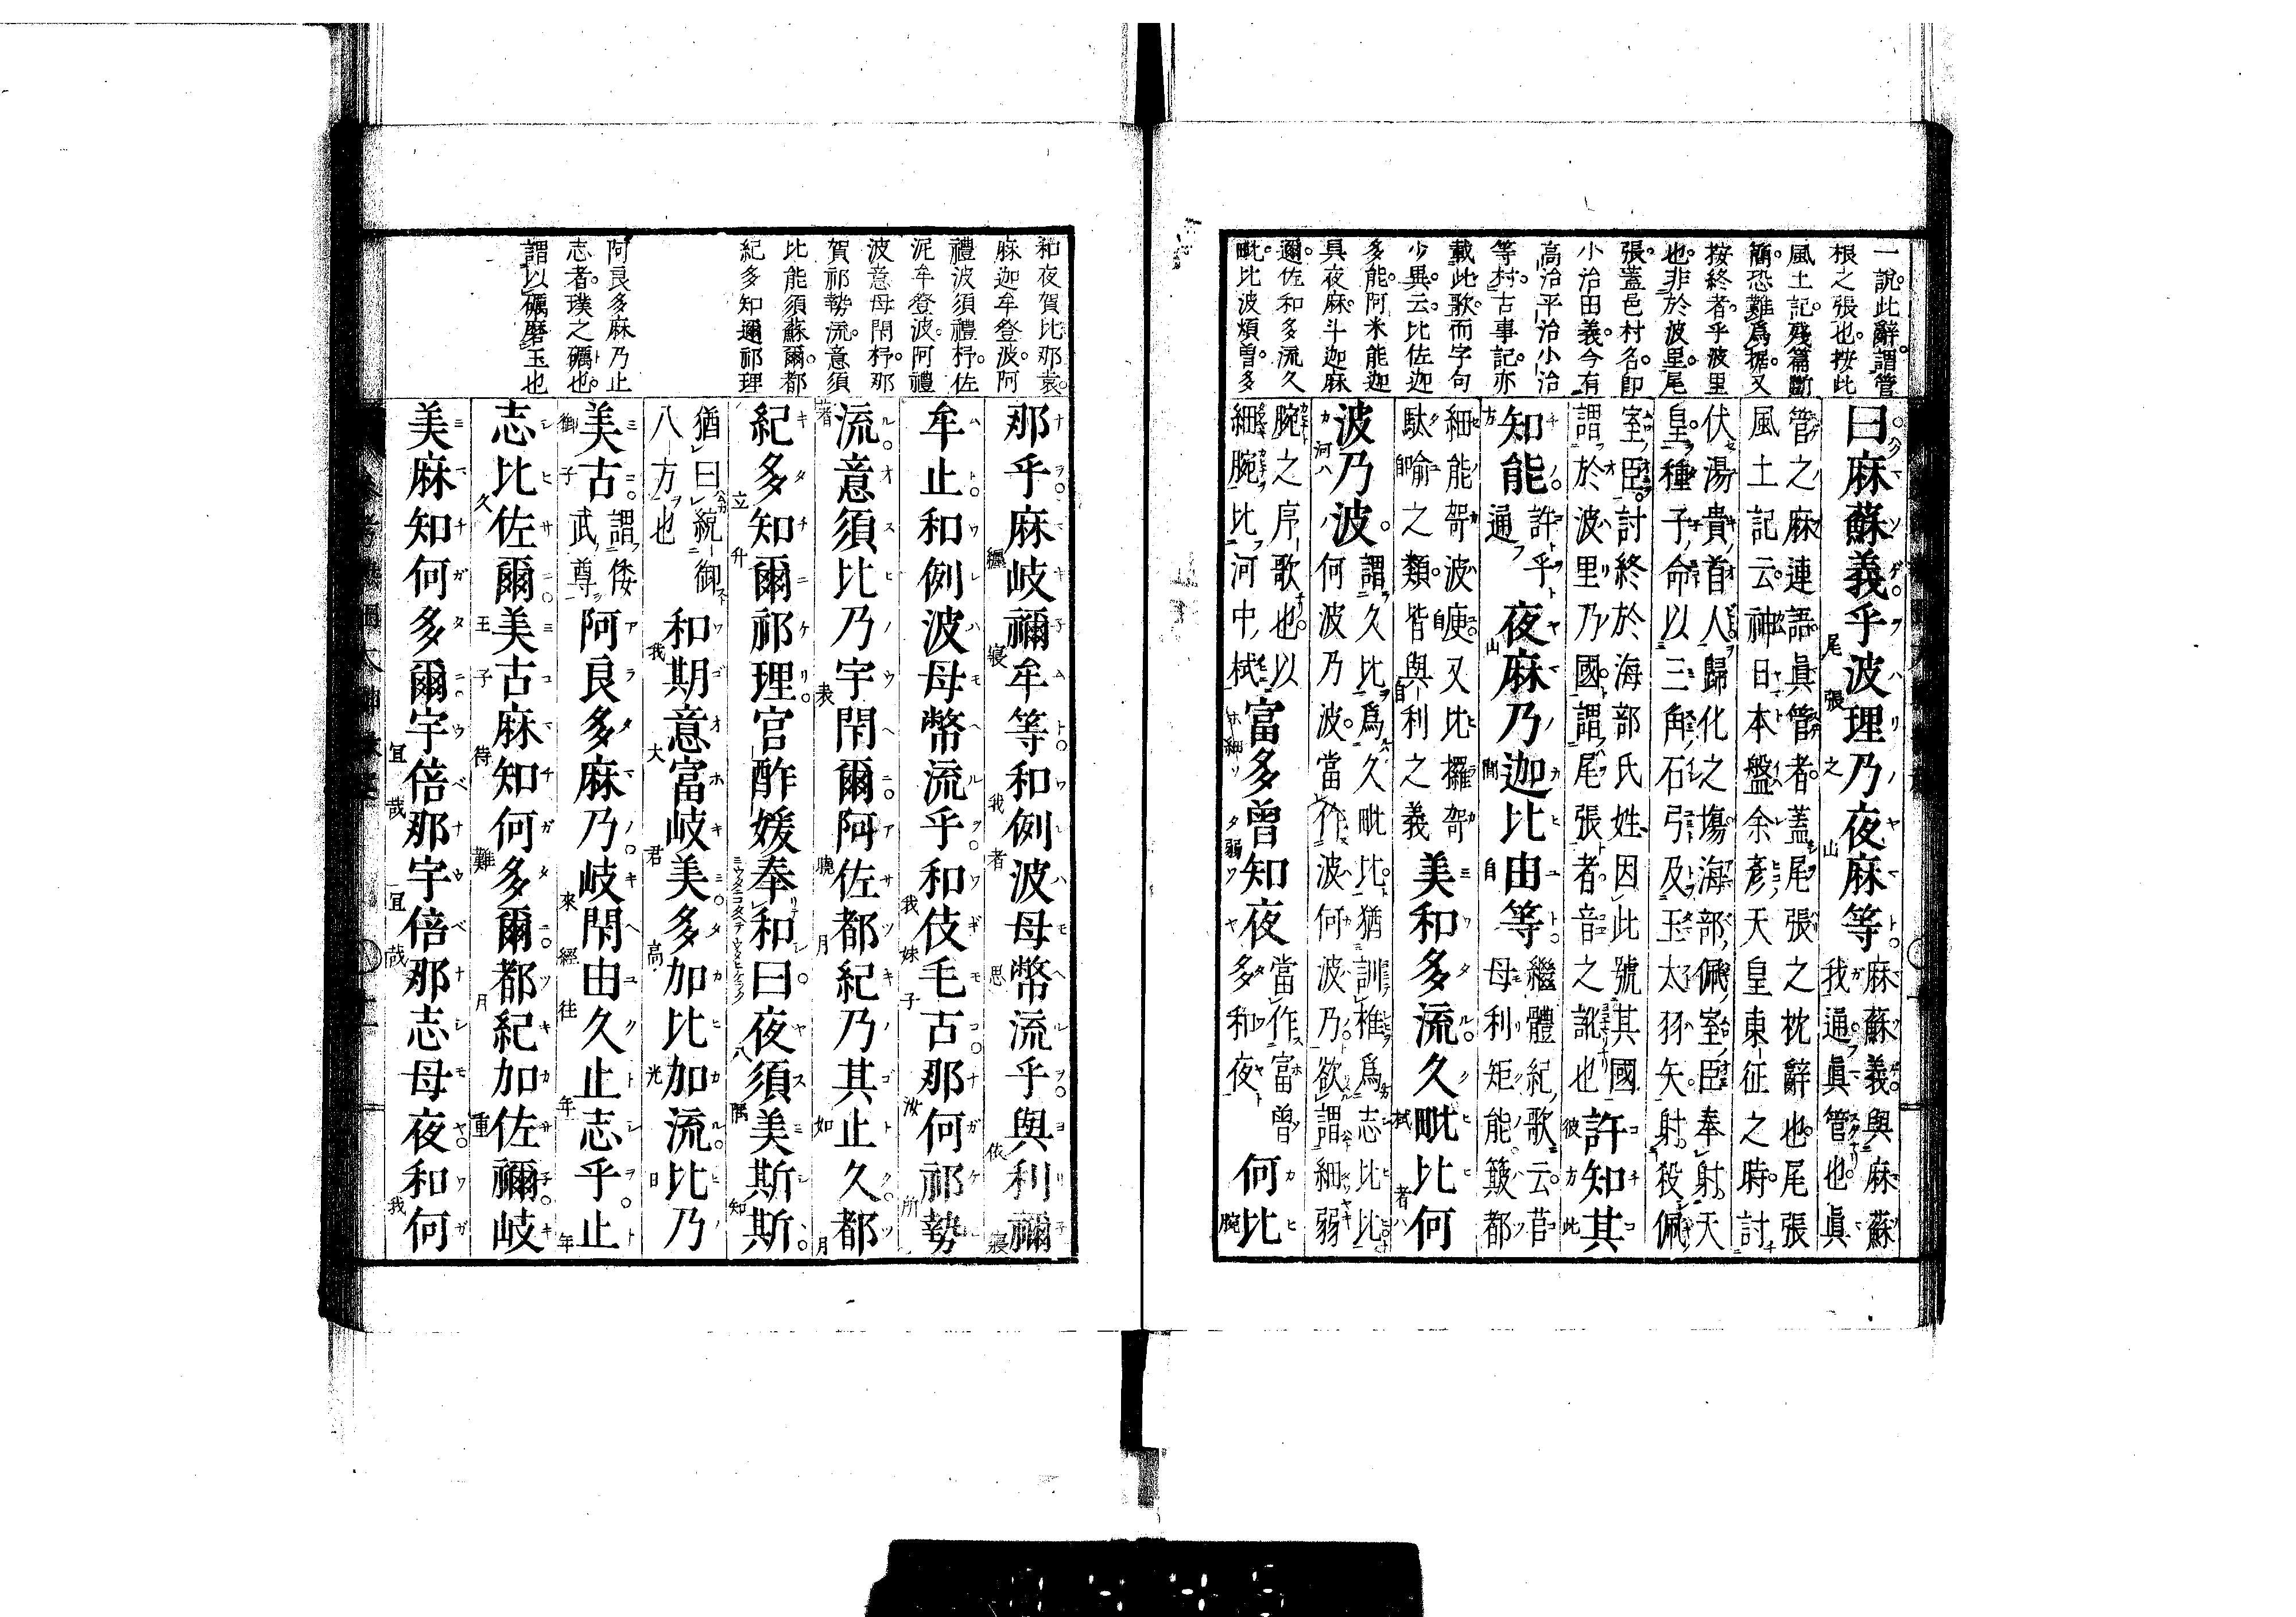 一說此辭謂管
根之張也按此
風土記殘篇斷
簡恐難爲據又
按終者乎波里
也非於波里尾
張蓋邑村名卽
小治田義今有
高治平治小治
等村古事記亦
載此歌而字句
少異云比佐迦
多能阿米能迦
具夜麻斗迦麻
邇佐和多流久
毗比波煩曾多
曰麻蘇義乎波理乃夜麻等
麻蘇義與麻蘇
我通眞管也眞
管之麻連語眞管者蓋尾張之枕辭也尾張
風土記云神日本盤余彥天皇東征之時討
伏湯貴首人歸化之塲海部佩室臣奉射天
皇種子命以三角石弓及玉太羽矢射殺佩
室臣討終於海部氏姓因此號其國
謂於波里乃國謂尾張者音之訛也
許知其
知能
許乎
通
夜麻乃迦比由等
繼體紀歌云莒
母利矩能簸都
細能哿波庾又比攞哿
駄喻之類皆與利之義
美和多流久毗比何
波乃波
謂久比爲久毗比猶訓椎爲志比比
何波乃波當作波何波乃欲謂細弱
腕之序歌也以
細腕比河中杙
富多曾知夜
當作富曾
多和夜
何比
和夜賀比那袁
麻迦牟登波阿
禮波須禮杼佐
泥牟登波阿禮
波意母閇杼那
賀祁勢流意須
比能須蘇爾都
紀多知邇祁理
阿良多麻乃止
志者璞之礪也
謂以礪磨玉也
那乎麻岐禰牟等和例波母幣流乎與利禰
牟止和例波母幣流乎和伎毛古那何祁勢
流意須比乃宇閇爾阿佐都紀乃其止久都
紀多知爾祁理官酢媛奉和曰夜須美斯斯
猶曰統御
八方也
和期意富岐美多加比加流比乃
美古
謂倭
武尊
阿良多麻乃岐閇由久止志乎止
志比佐爾美古麻知何多爾都紀加佐禰岐
美麻知何多爾宇倍那宇倍那志母夜和何